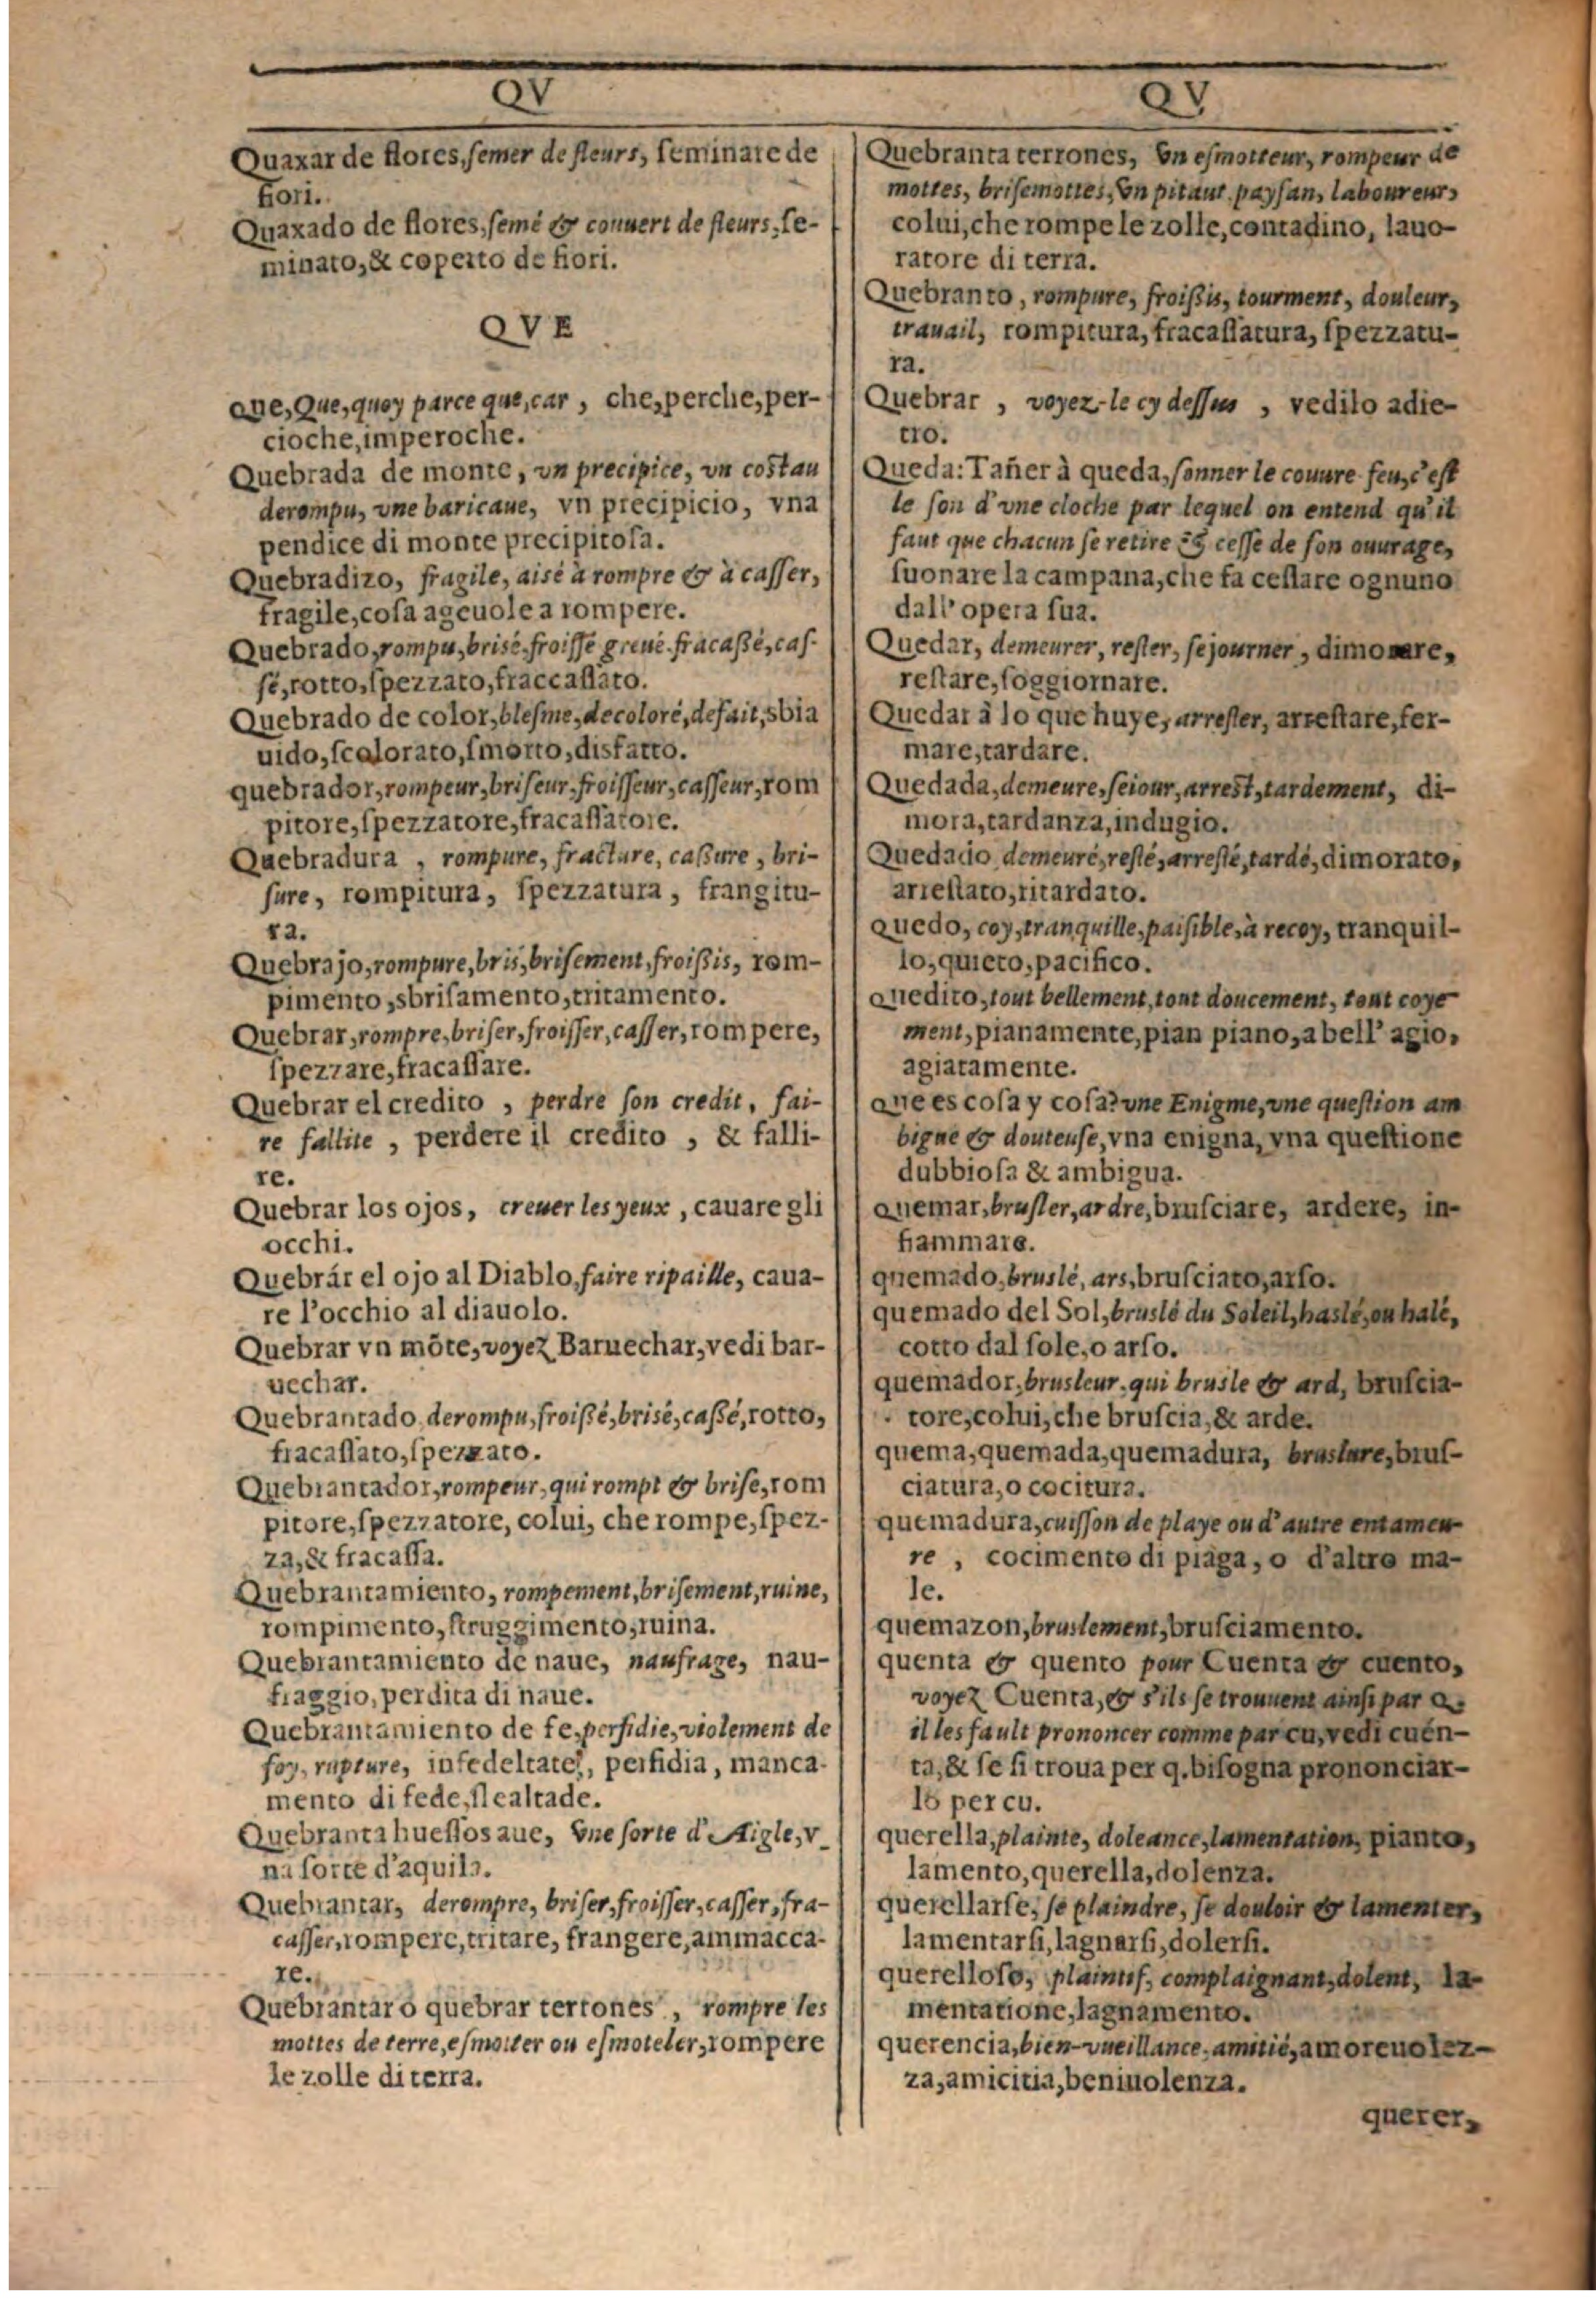 QV
Quaxar de flores, semer de fleurs, seminare de
fiori.
Quaxado de flores, semé & couuert de fleurs, se-
minato, & coperto de fiori.
QVE
que, Que, quoy parce que, car, che, perche, per-
cioche, imperoche.
Quebrada de monte, vn precipice, vn costau
derompu, vne baricaue, vn precipicio, vna
pendice di monte precipitosa.
Quebradizo, fragile, aisé à rompre & à casser,
fragile, cosa ageuole a rompere.
Quebrado, rompu, brisé, froissé greué, fracassé, cas-
sé, rotto, spezzato, fraccassato.
Quebrado de color, blesme, decoloré, defait, sbia
uido, scolorato, smorto, disfatto.
quebrador, rompeur, briseur, froisseur, casseur, rom
pitore, spezzatore, fracassatore.
Quebradura, rompure, fracture, cassure, bri-
sure, rompitura, spezzatura, frangitu-
ra.
Quebrajo, rompure, bris, brisement, froissis, rom-
pimento, sbrisamento, tritamento.
Quebrar, rompre, briser, froisser, casser, rompere,
spezzare, fracassare.
Quebrar el credito, perdre son credit, fai-
re fallite, perdere il credito, & falli-
re.
Quebrar los ojos, creuer les yeux, cauare gli
occhi.
Quebrár el ojo al Diablo, faire ripaille, caua-
re l'occhio al diauolo.
Quebrar vn mõte, voyez Baruechar, vedi bar-
uechar.
Quebrantado, derompu, froissé, brisé, cassé, rotto,
fracassato, spezzato.
Quebrantador, rompeur, qui rompt & brise, rom
pitore, spezzatore, colui, che rompe, spez-
za, & fracassa.
Quebrantamiento, rompement, brisement, ruine,
rompimento, struggimento, ruina.
Quebrantamiento de naue, naufrage, nau-
fraggio, perdita di naue.
Quebrantamiento de fe, perfidie, violement de
foy, rupture, infedeltate, perfidia, manca-
mento di fede, slealtade.
Quebranta huessos aue, vne sorte d'Aigle, v_
na sorte d'aquila.
Quebrantar, derompre, briser, froisser, casser, fra-
casser, rompere, tritare, frangere, ammacca-
re.
Quebrantar o quebrar terrones, rompre les
mottes de terre, esmotter ou esmoteler, rompere
le zolle di terra.
QV
Quebranta terrones, vn esmotteur, rompeur de
mottes, brisemottes, vn pitaut, paysan, laboureur,
colui, che rompe le zolle, contadino, lauo-
ratore di terra.
Quebranto, rompure, froissis, tourment, douleur,
trauail, rompitura, fracassatura, spezzatu-
ra.
Quebrar, voyez-le cy dessus, vedilo adie-
tro.
Queda: Tañer à queda, sonner le couure-feu, c'est
le son d'vne cloche par lequel on entend qu'il
faut que chacun se retire & cesse de son ouurage,
suonare la campana, che fa cessare ognuno
dall'opera sua.
Quedar, demeurer, rester, sejourner, dimorare,
restare, soggiornare.
Quedar à lo que huye, arrester, arrestare, fer-
mare, tardare.
Quedada, demeure, seiour, arrest, tardement, di-
mora, tardanza, indugio.
Quedado, demeuré, resté, arresté, tardé, dimorato,
arrestato, ritardato.
quedo, coy, tranquille, paisible, à recoy, tranquil-
lo, quieto, pacifico.
quedito, tout bellement, tout doucement, tout coye
ment, pianamente, pian piano, a bell'agio,
agiatamente.
que es cosa y cosa? vne Enigme, vne question am
bigue & douteuse, vna enigna, vna questione
dubbiosa & ambigua.
quemar, brusler, ardre, brusciare, ardere, in-
fiammare.
quemado, bruslé, ars, brusciato, arso.
quemado del Sol, bruslé du Soleil, haslé, ou halé,
cotto dal sole, o arso.
quemador, brusleur, qui brusle & ard, bruscia-
tore, colui, che bruscia, & arde.
quema, quemada, quemadura, bruslure, brus-
ciatura, o cocitura.
quemadura, cuisson de playe ou d'autre entameu-
re, cocimento di piaga, o d'altro ma-
le.
quemazon, bruslement, brusciamento.
quenta & quento pour Cuenta & cuento,
voyez Cuenta, & s'ils se trouuent ainsi par Q.
il les fault prononcer comme par cu, vedi cuén-
ta, & se si troua per q. bisogna prononciar-
lo per cu.
querella, plainte, doleance, lamentation, pianto,
lamento, querella, dolenza.
querellarse, se plaindre, se douloir & lamenter,
lamentarsi, lagnarsi, dolersi.
querelloso, plaintif, complaignant, dolent, la-
mentatione, lagnamento.
querencia, bien-vueillance, amitié, amoreuolez-
za, amicitia, beniuolenza.
querer,